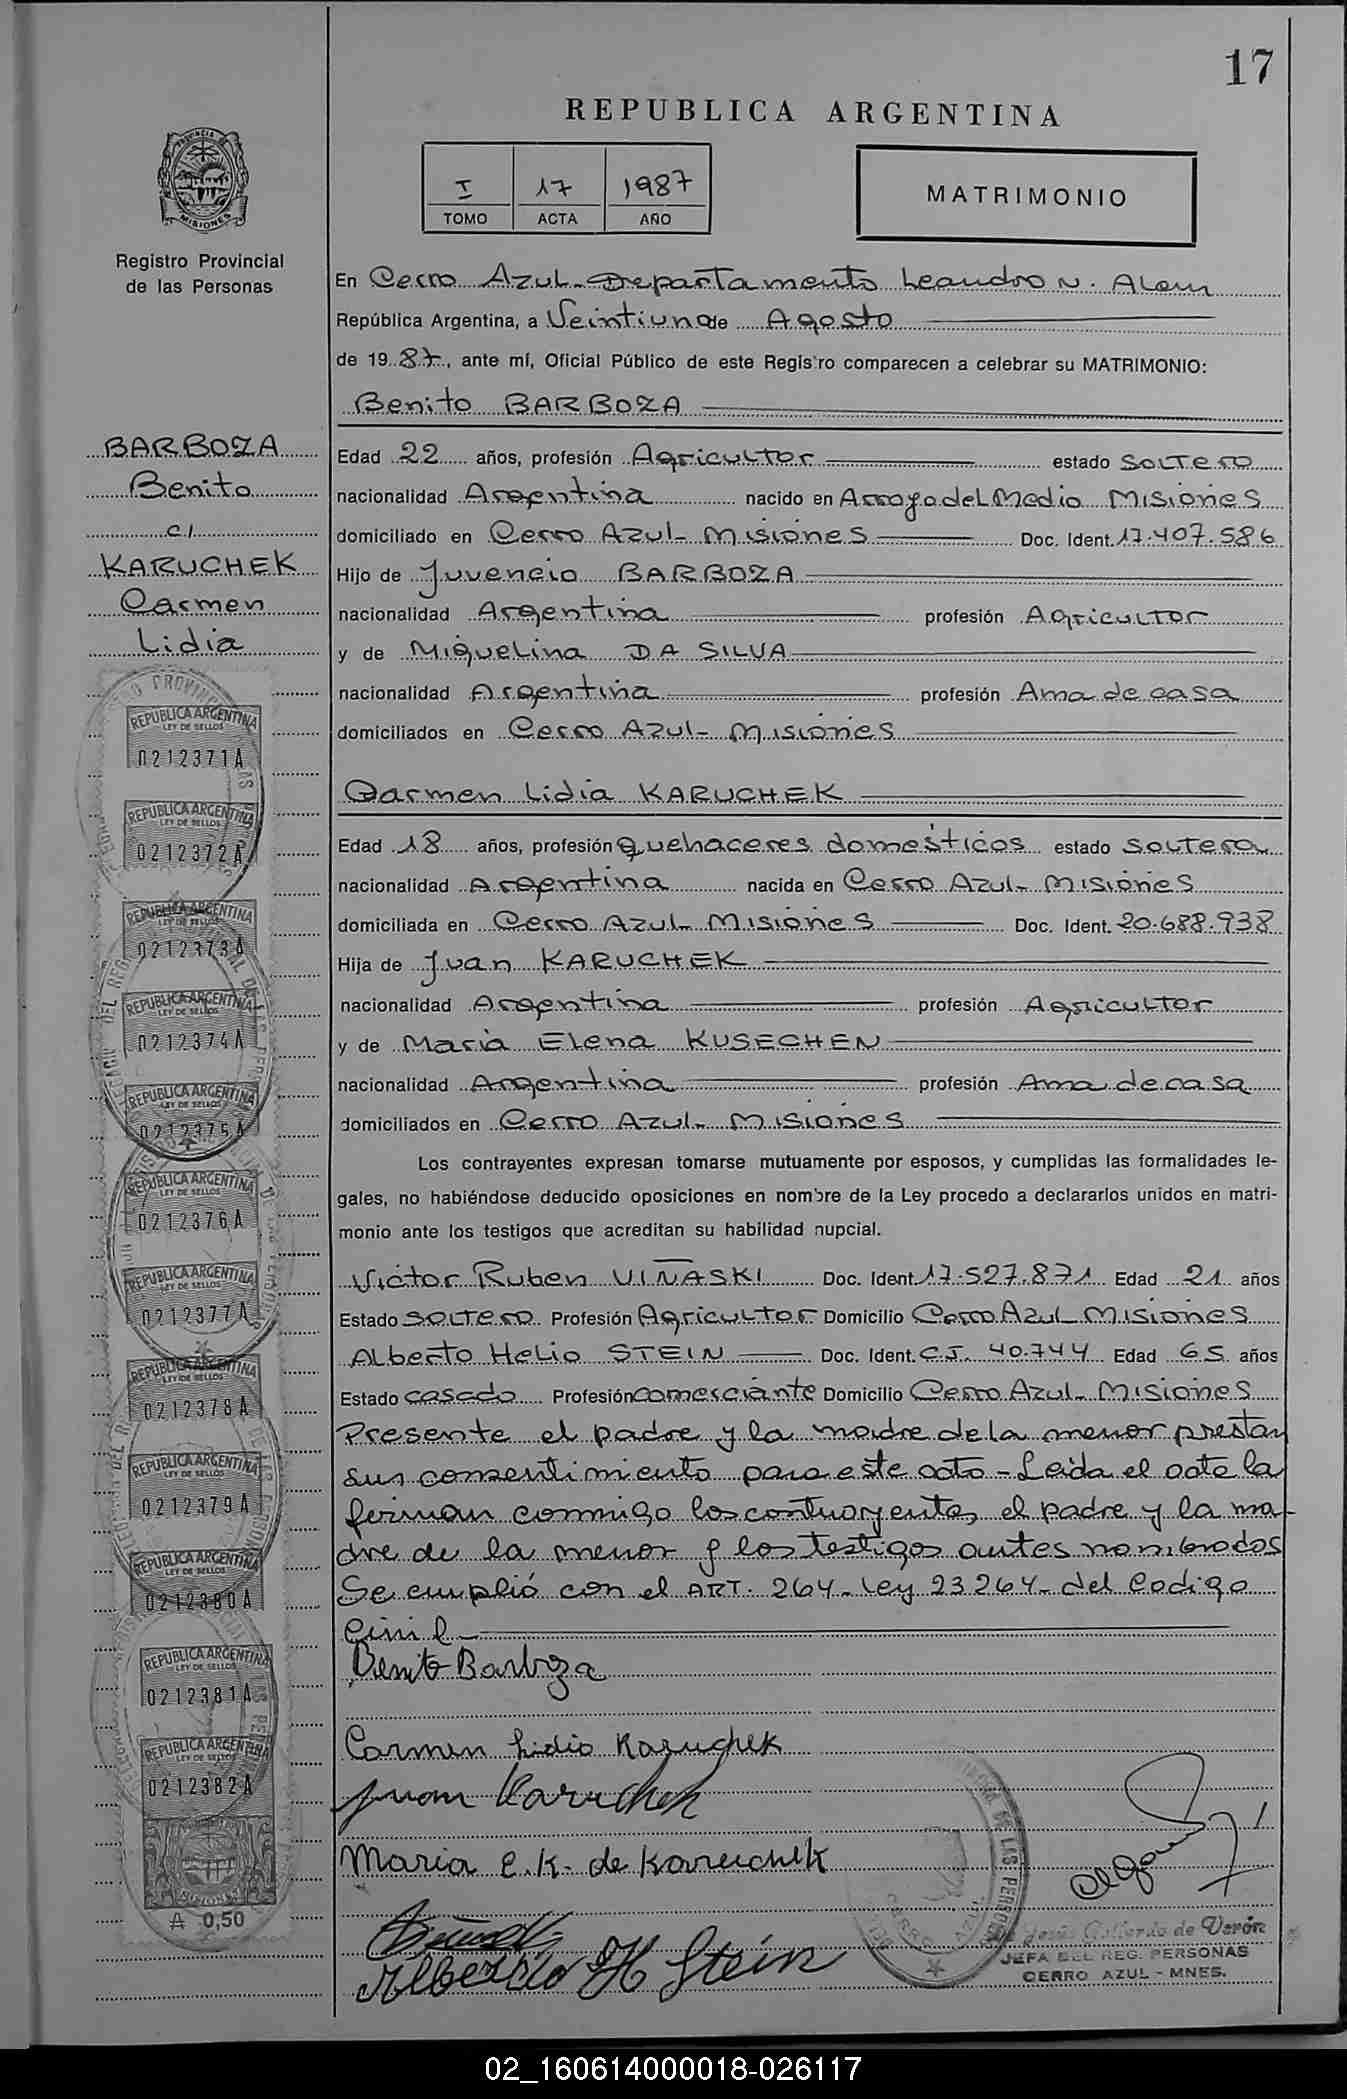 17
REPUBLICA ARGENTINA
I 17 1987
TOMO ACTA AÑO
MATRIMONIO
PROVINCIA
MISIONES
Registro Provincial
de las Personas
En Cerro Azul - Departamento Leandro N. Alem
República Argentina, a Veintiuno de Agosto
de 19 87, ante mí, Oficial Público de este Registro comparecen a celebrar su MATRIMONIO:
Benito BARBOZA
BARBOZA
Benito
c/
KARUCHEK
Carmen
Lidia
Edad 22 años, profesión Agricultor estado soltero
nacionalidad Argentina nacido en Arroyo del Medio Misiones
domiciliado en Cerro Azul - Misiones Doc. Ident. 17.407.586
Hijo de Juvencio BARBOZA
nacionalidad Argentina profesión Agricultor
y de Miguelina DA SILVA
nacionalidad Argentina profesión Ama de casa
domiciliados en Cerro Azul - Misiones
Carmen Lidia KARUCHEK
Edad 18 años, profesión quehaceres domésticos estado soltera
nacionalidad Argentina nacida en Cerro Azul - Misiones
domiciliada en Cerro Azul - Misiones Doc. Ident. 20.688.938
Hija de Juan KARUCHEK
nacionalidad Argentina profesión Agricultor
y de Maria Elena KUSECHEN
nacionalidad Argentina profesión Ama de casa
domiciliados en Cerro Azul - Misiones
Los contrayentes expresan tomarse mutuamente por esposos, y cumplidas las formalidades le-
gales, no habiéndose deducido oposiciones en nombre de la Ley procedo a declararlos unidos en matri-
monio ante los testigos que acreditan su habilidad nupcial.
Victor Ruben VIÑASKI Doc. Ident. 17.527.871 Edad 21 años
Estado soltero Profesión Agricultor Domicilio Cerro Azul Misiones
Alberto Helio STEIN Doc. Ident. C.I. 40.744 Edad 65 años
Estado casado Profesión comerciante Domicilio Cerro Azul - Misiones
Presente el padre y la madre de la menor prestan
sus consentimiento para este acto - Leida el acta la
firman conmigo los contrayentes, el padre y la ma-
dre de la menor y los testigos antes nombrados
Se cumplió con el ART. 264 - Ley 23264 - del Codigo
Civil -
Benito Barboza
Carmen Lidia Karuchek
Juan Karuchek
Maria E. K. de Karuchek
Alberto H Stein
Jesús Gallardo de Verón
JEFA DEL REG. PERSONAS
CERRO AZUL - MNES.
REPUBLICA ARGENTINA
LEY DE SELLOS
0212371A
REPUBLICA ARGENTINA
LEY DE SELLOS
0212372A
REPUBLICA ARGENTINA
LEY DE SELLOS
0212373A
REPUBLICA ARGENTINA
LEY DE SELLOS
0212374A
REPUBLICA ARGENTINA
LEY DE SELLOS
0212375A
REPUBLICA ARGENTINA
LEY DE SELLOS
0212376A
REPUBLICA ARGENTINA
LEY DE SELLOS
0212377A
REPUBLICA ARGENTINA
LEY DE SELLOS
0212378A
REPUBLICA ARGENTINA
LEY DE SELLOS
0212379A
REPUBLICA ARGENTINA
LEY DE SELLOS
0212380A
REPUBLICA ARGENTINA
LEY DE SELLOS
0212381A
REPUBLICA ARGENTINA
LEY DE SELLOS
0212382A
MISIONES
₳ 0,50
02_160614000018-026117